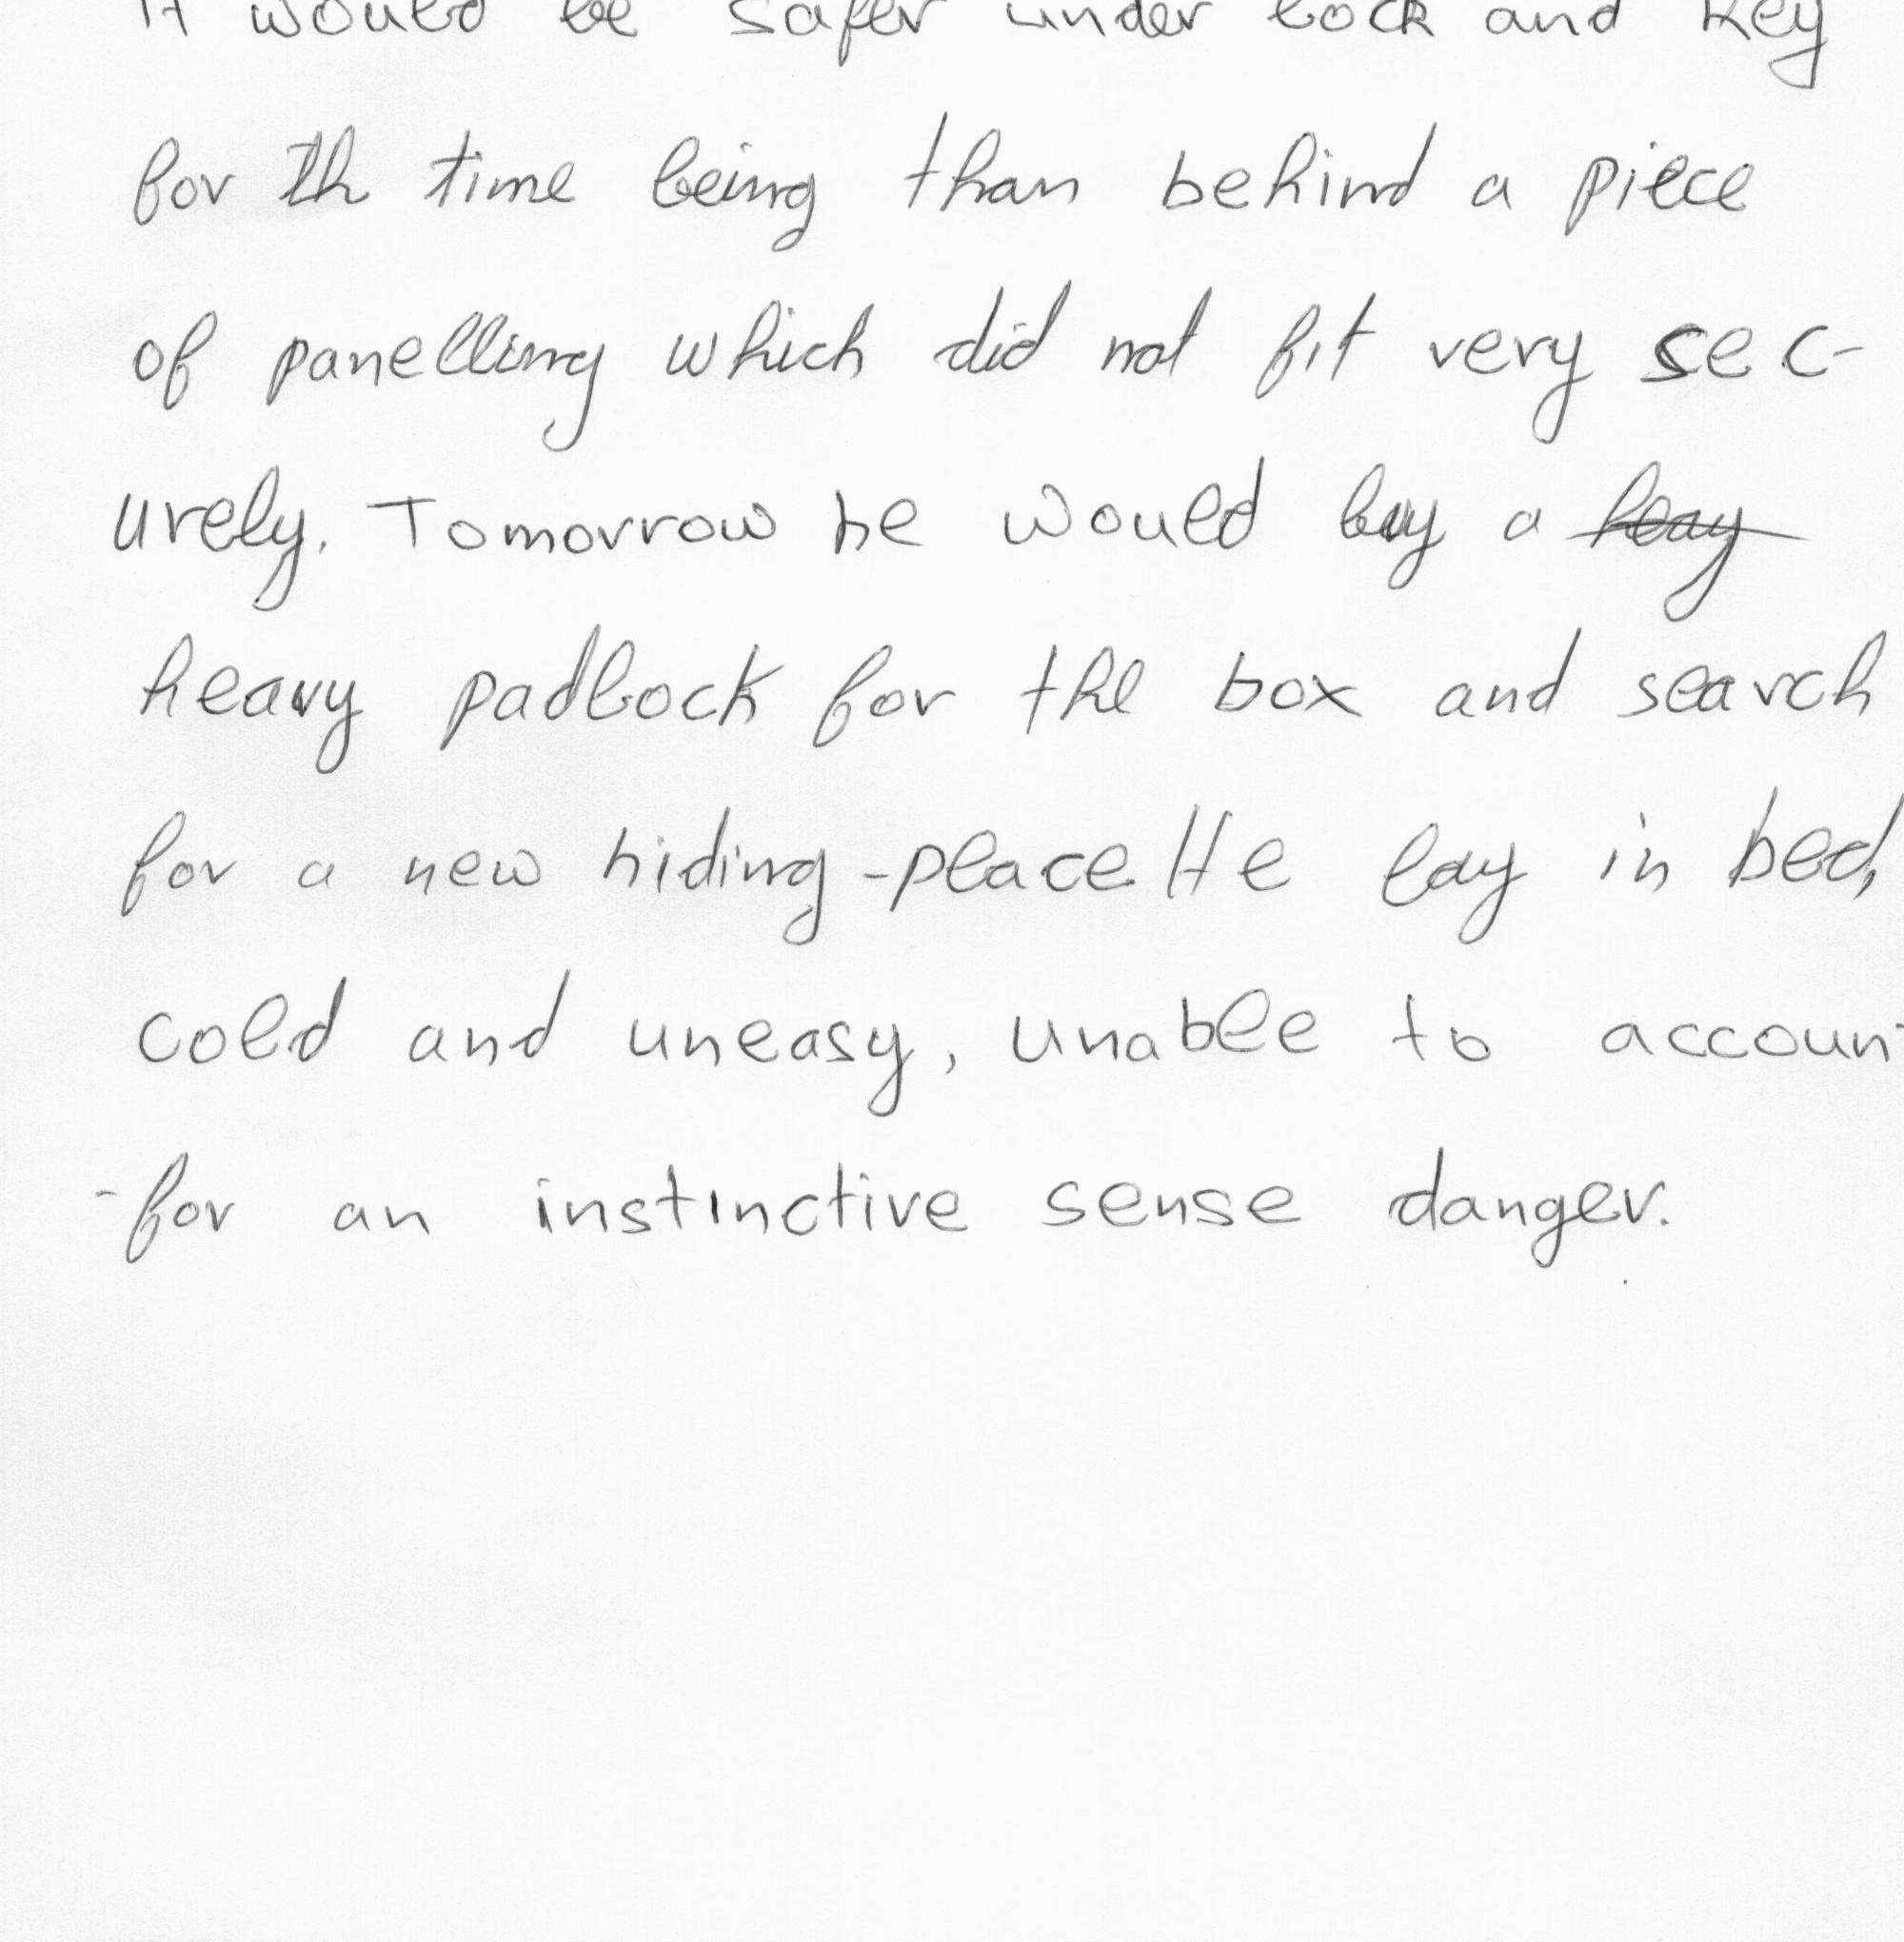 It would be safer under lock and key
for th time being than behind a piece
of panelling which did not fit very sec-
urely. Tomorrow he would buy a heay
heavy padlock for the box and search
for a new hiding-place. He lay in bed,
cold and uneasy, unable to accoun-
-for an instinctive sense danger.